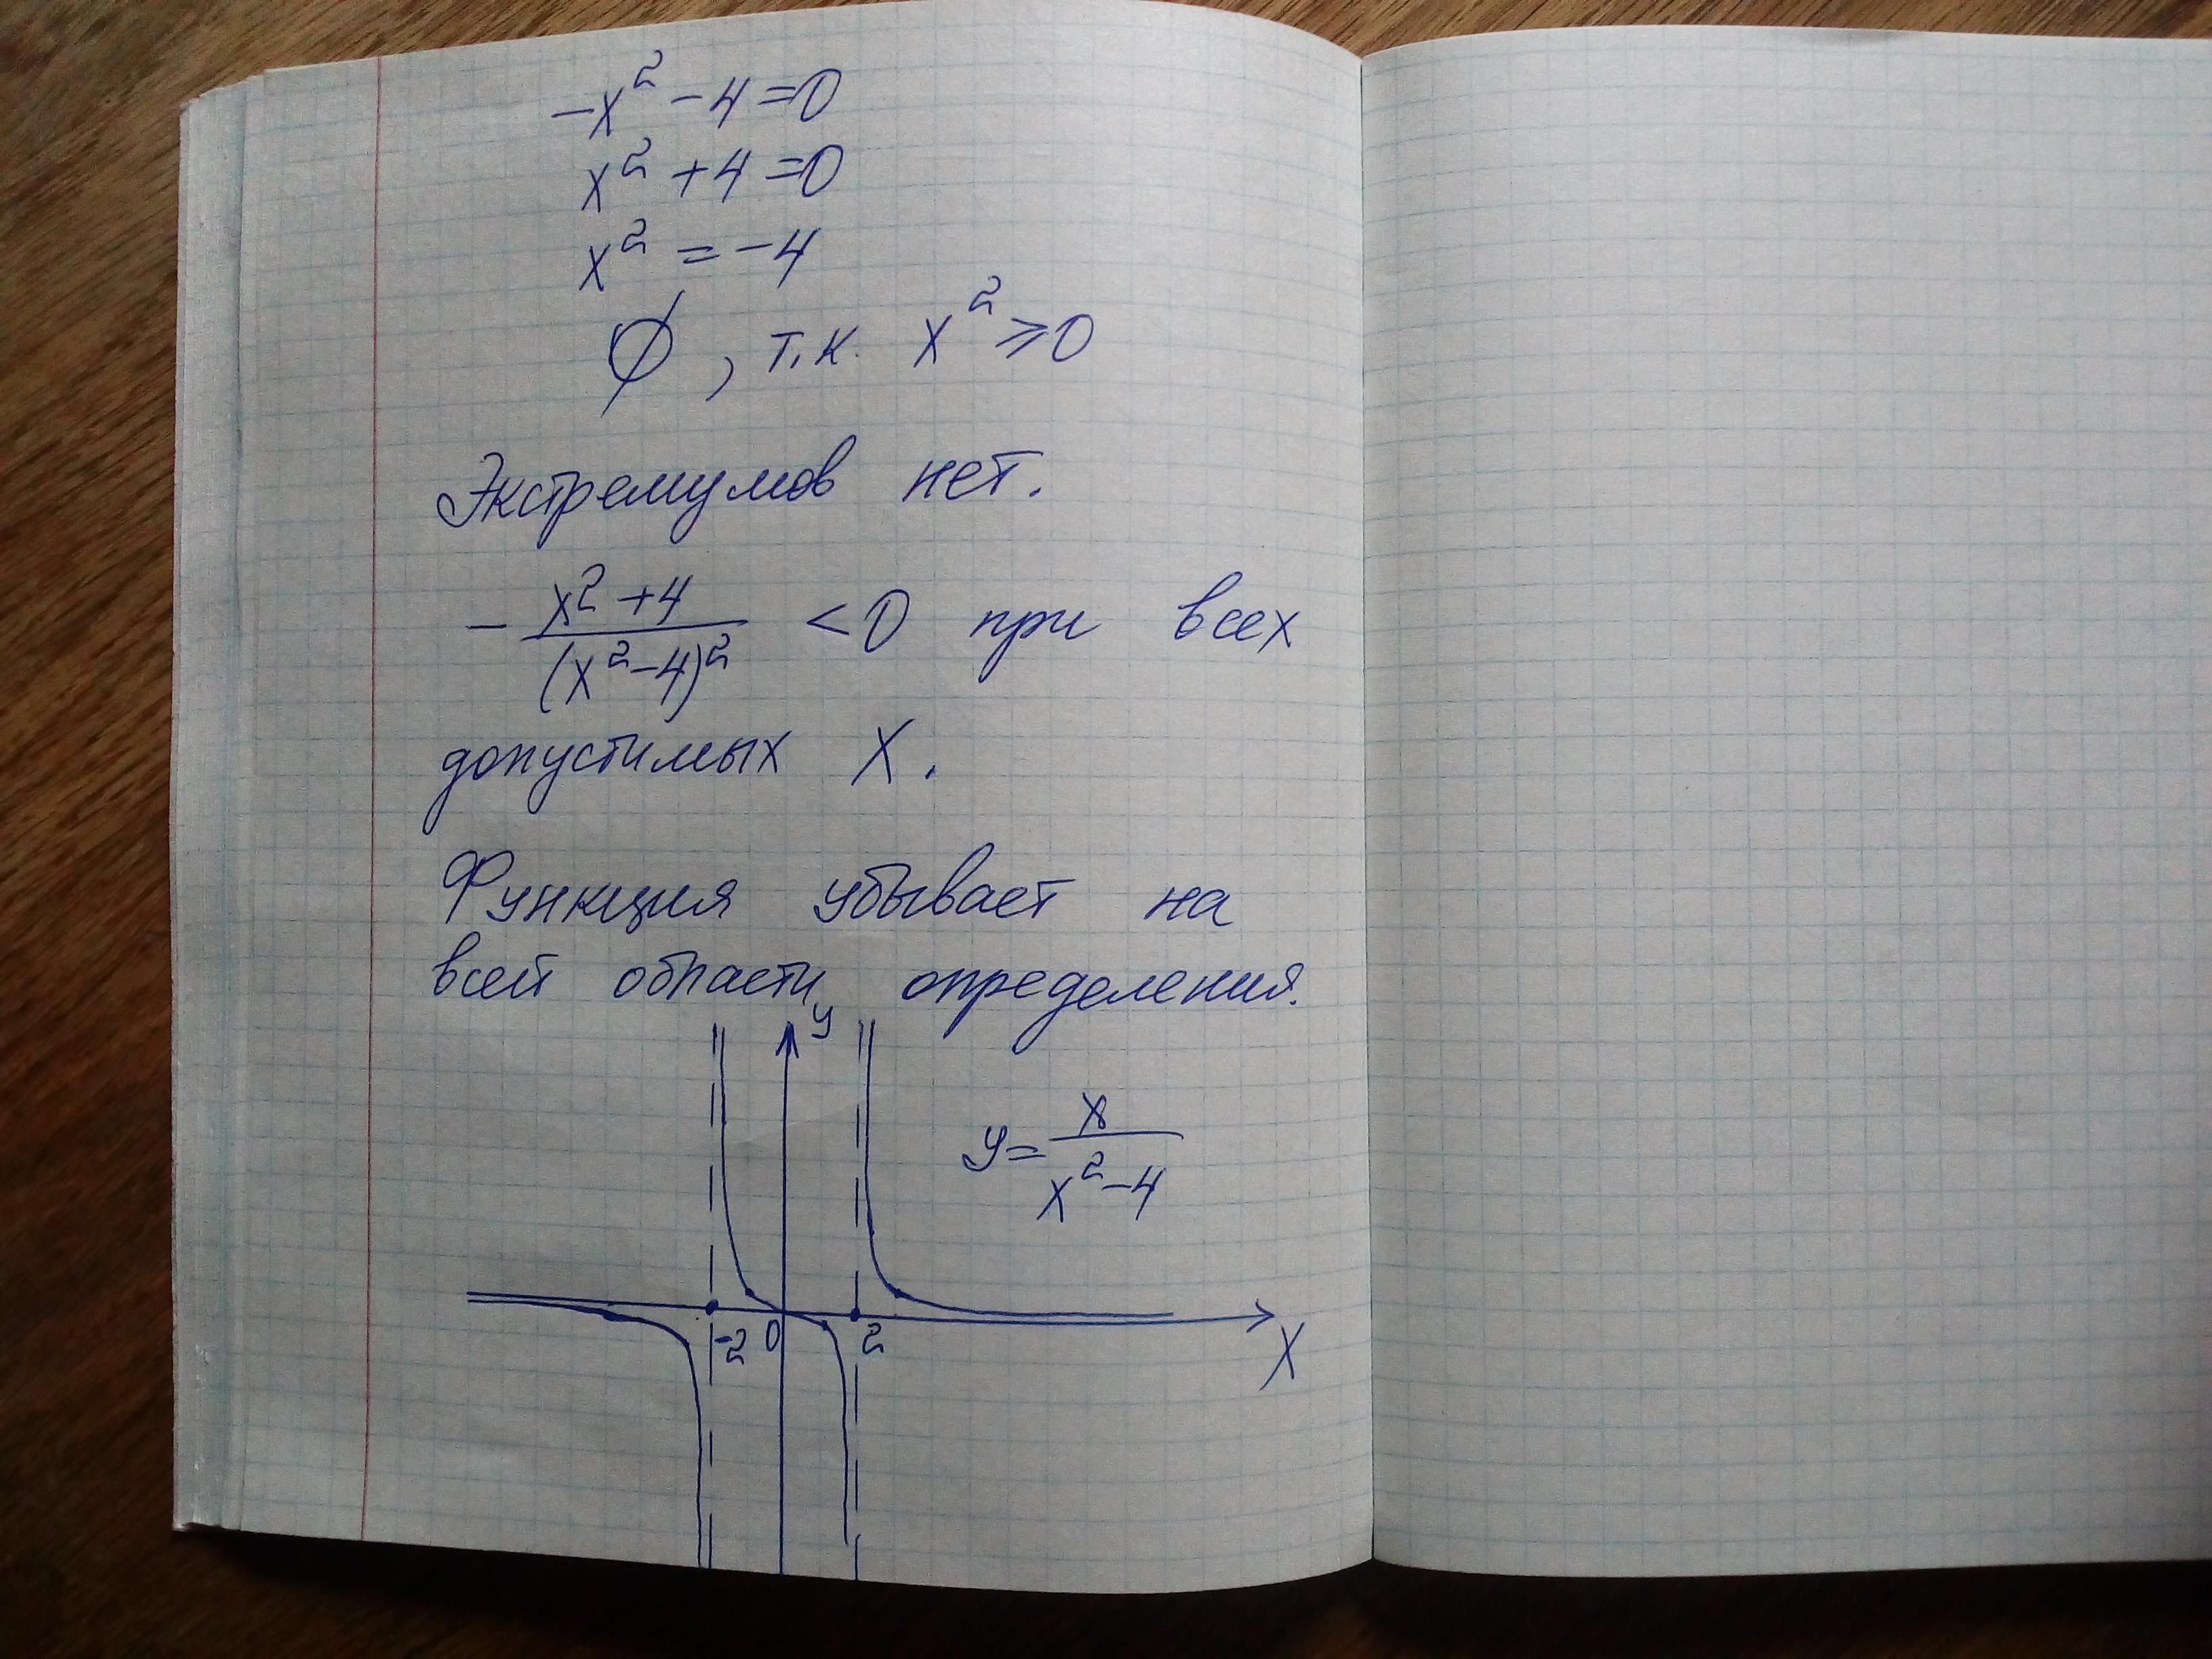 -x² - 4 = 0
x² + 4 = 0
x² = -4
∅, т.к. x² ⩾ 0
Экстремумов нет.
- (x² + 4)/(x² - 4)² < 0 при всех
допустимых X.
Функция убывает на
всей области определения.
y
y = x/(x² - 4)
-2 0 2
X